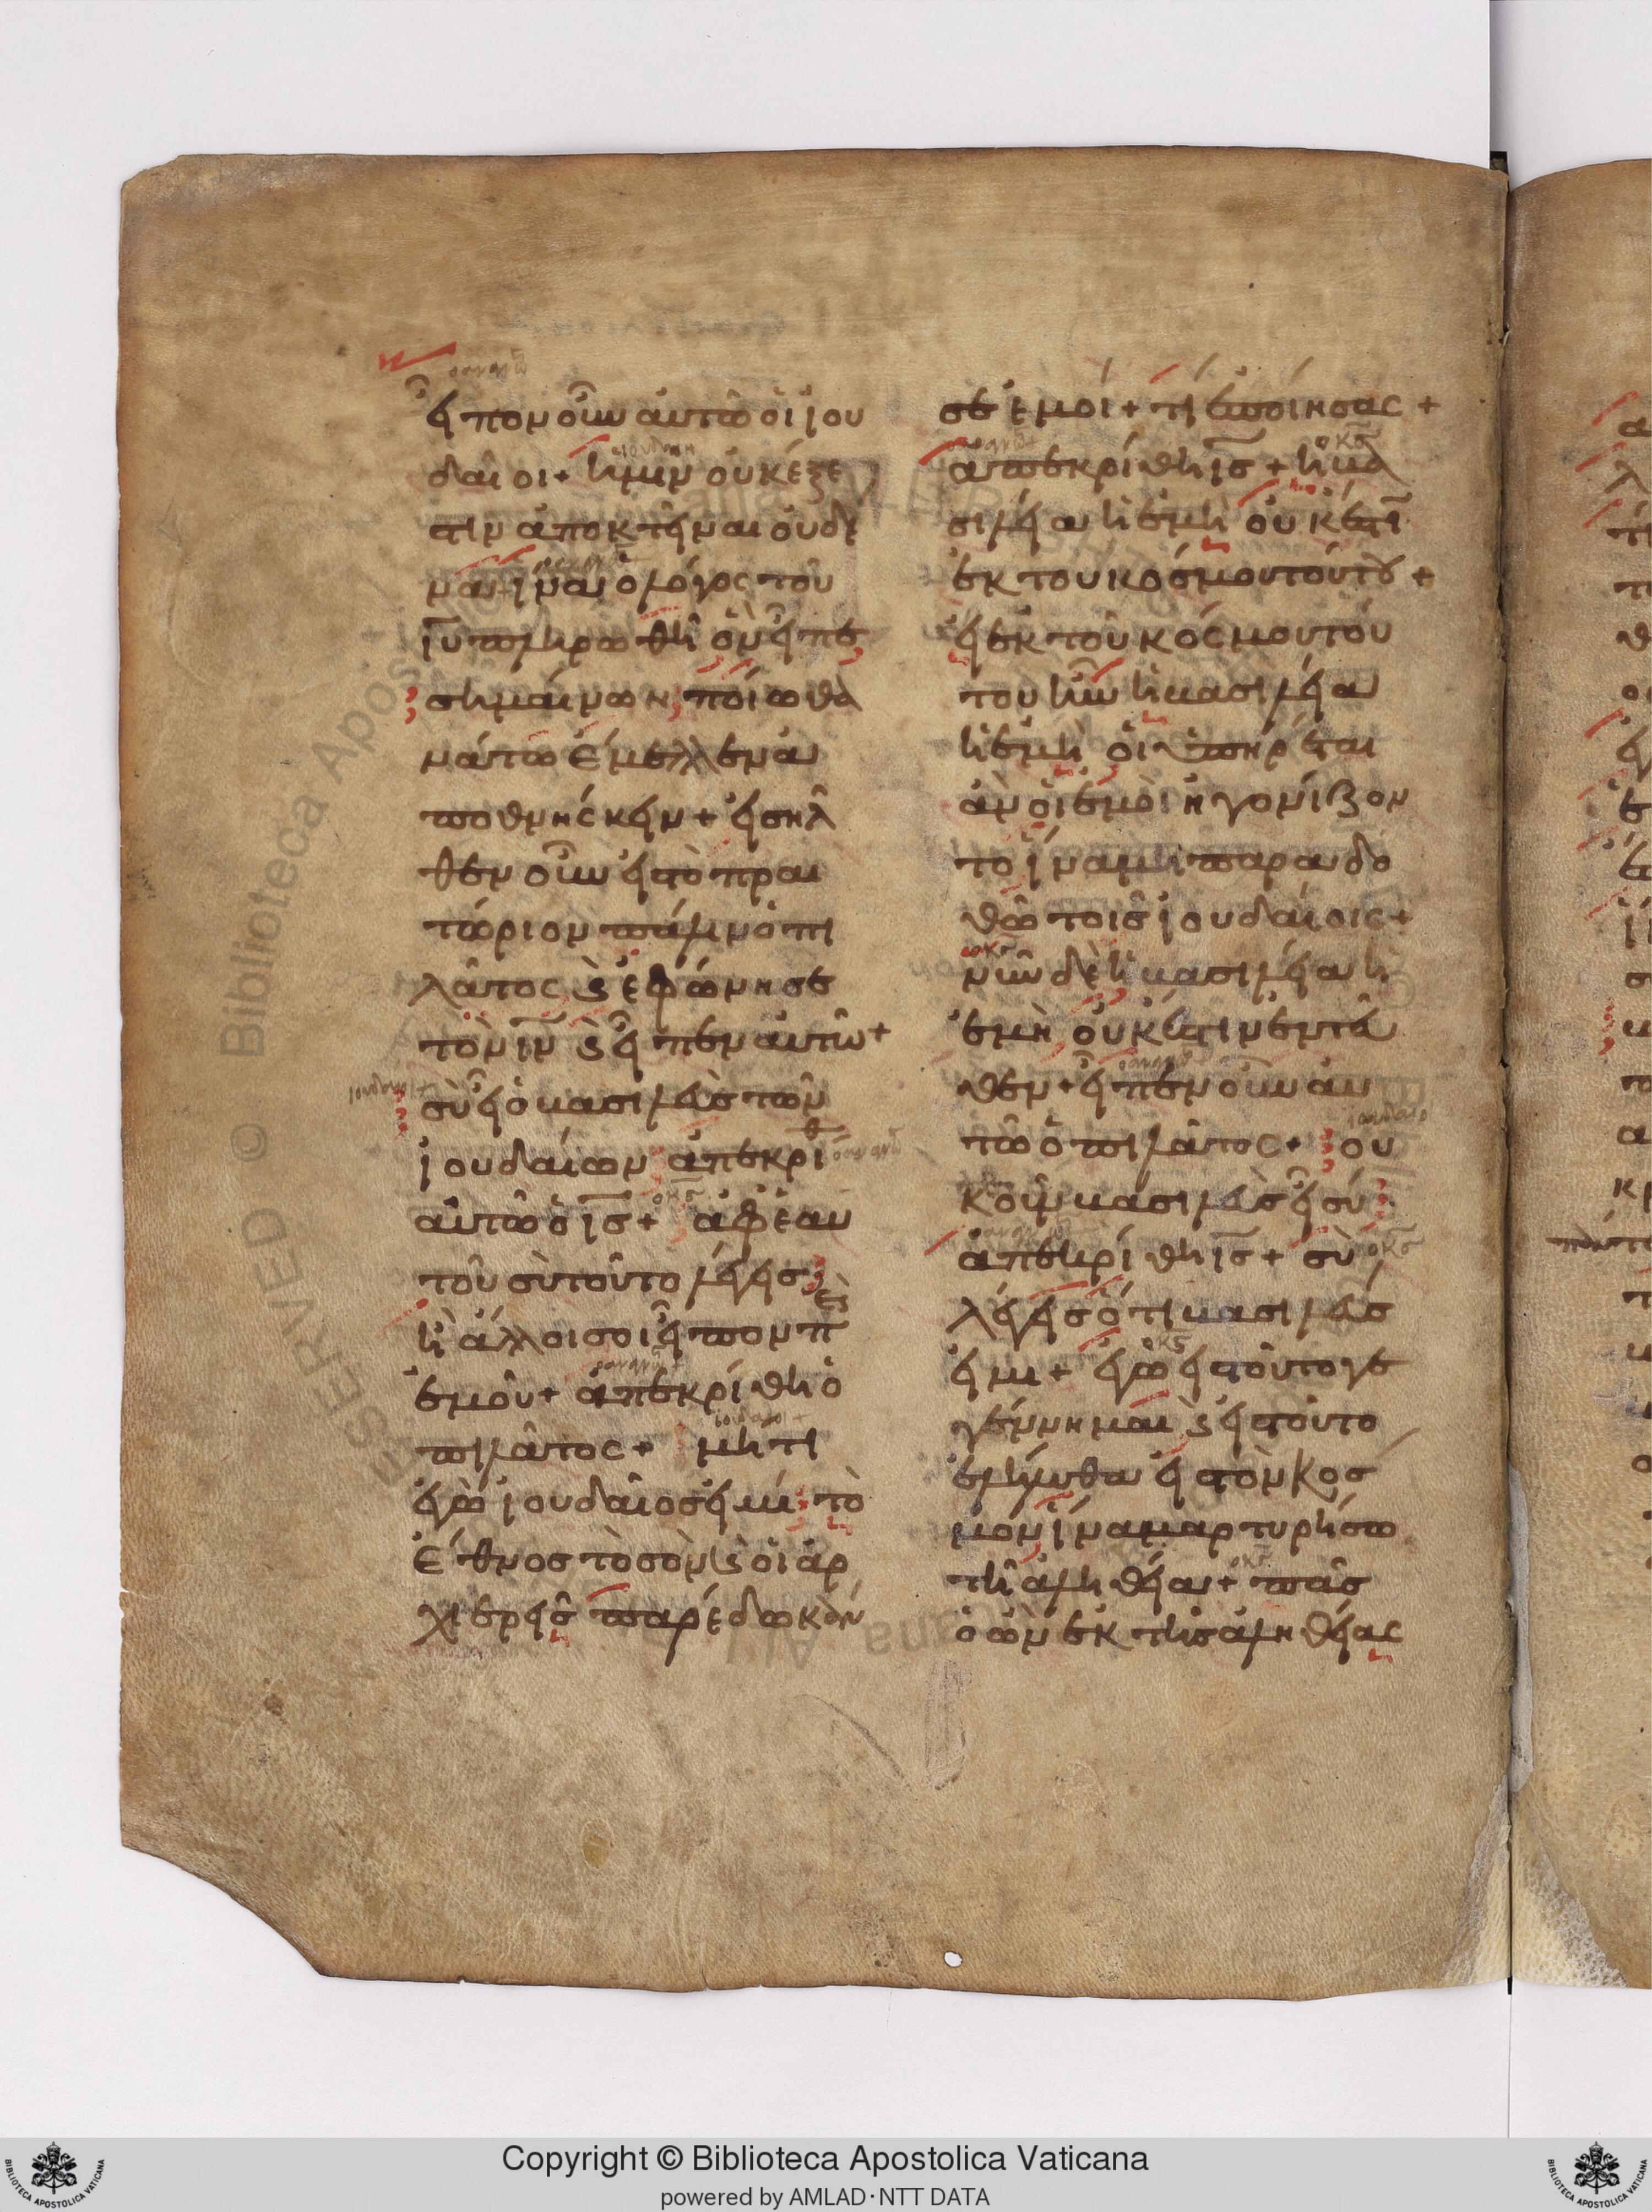 εἶπον οὖν αὐτῶ οἱ ἰου
δαῖοι + ἡμῖν οὐκ ἔξε
στιν ἀποκτεῖναι οὐδέ
να + ἵνα ὁ λόγος τοῦ
ιυ πληρωθῆ ὃν εἶπε
σημαίνων ποίω θα
νάτω ἔμελλεν ἀ
ποθνήσκειν + εἰσῆλ
θεν οὖν εἰς τὸ πραι
τώριον πάλιν ὁ πι
λάτος ϗ ἐφώνησε
τὸν ιν ϗ εἶπεν αὐτῶ +
σὺ εἶ ὁ βασιλεὺς τῶν
ἰουδαίων ἀπεκρίθ
αὐτῶ ὁ ισ + ἀφ ἑαυ
τοῦ σὺ τοῦτο λέγεις
ἢ ἄλλοι σοι εἶπον πε
ρὶ
ἐμοῦ + ἀπεκρίθη ὁ
πιλάτος + μήτι
ἐγὼ ἰουδαῖος εἰμι τὸ
ἔθνος τὸ σὸν ϗ οἱ ἀρ
χιερεῖς παρέδωκάν
σε ἐμοί + τί ἐποίησας +
ἀπεκρίθη ισ + ἡ βα
σιλεία ἡ ἐμὴ οὐκ ἔστι
ἐκ τοῦ κόσμου τούτου +
εἰ ἐκ τοῦ κόσμου τού
του ἦν ἡ βασιλεία
ἡ ἐμὴ οἱ ὑπηρέται
ἂν οἱ ἐμοὶ ἠγονίζον
το ἵνα μὴ παραδο
θῶ τοῖς ἰουδαίοις +
νῦν δὲ ἡ βασιλεία ἡ
ἐμὴ οὐκ ἔστιν ἐντεῦ
θεν + εἶπεν οὖν αὐ
τῶ ὁ πιλάτος + οὐ
κοῦν βασιλεὺς εἶ σύ
ἀπεκρίθη ισ + σὺ
λέγεις ὅτι βασιλεὺς
εἰμι + ἐγὼ εἰς τοῦτο γε
γέννημαι ϗ εἰς τοῦτο
ἐλήλυθα εἰς τὸν κόσ
μον ἵνα μαρτυρήσω
τῆ ἀληθεία + πᾶς
ὁ ὢν ἐκ τῆς ἀληθείας
Copyright © Biblioteca Apostolica Vaticana
powered by AMLAD·NTT DATA